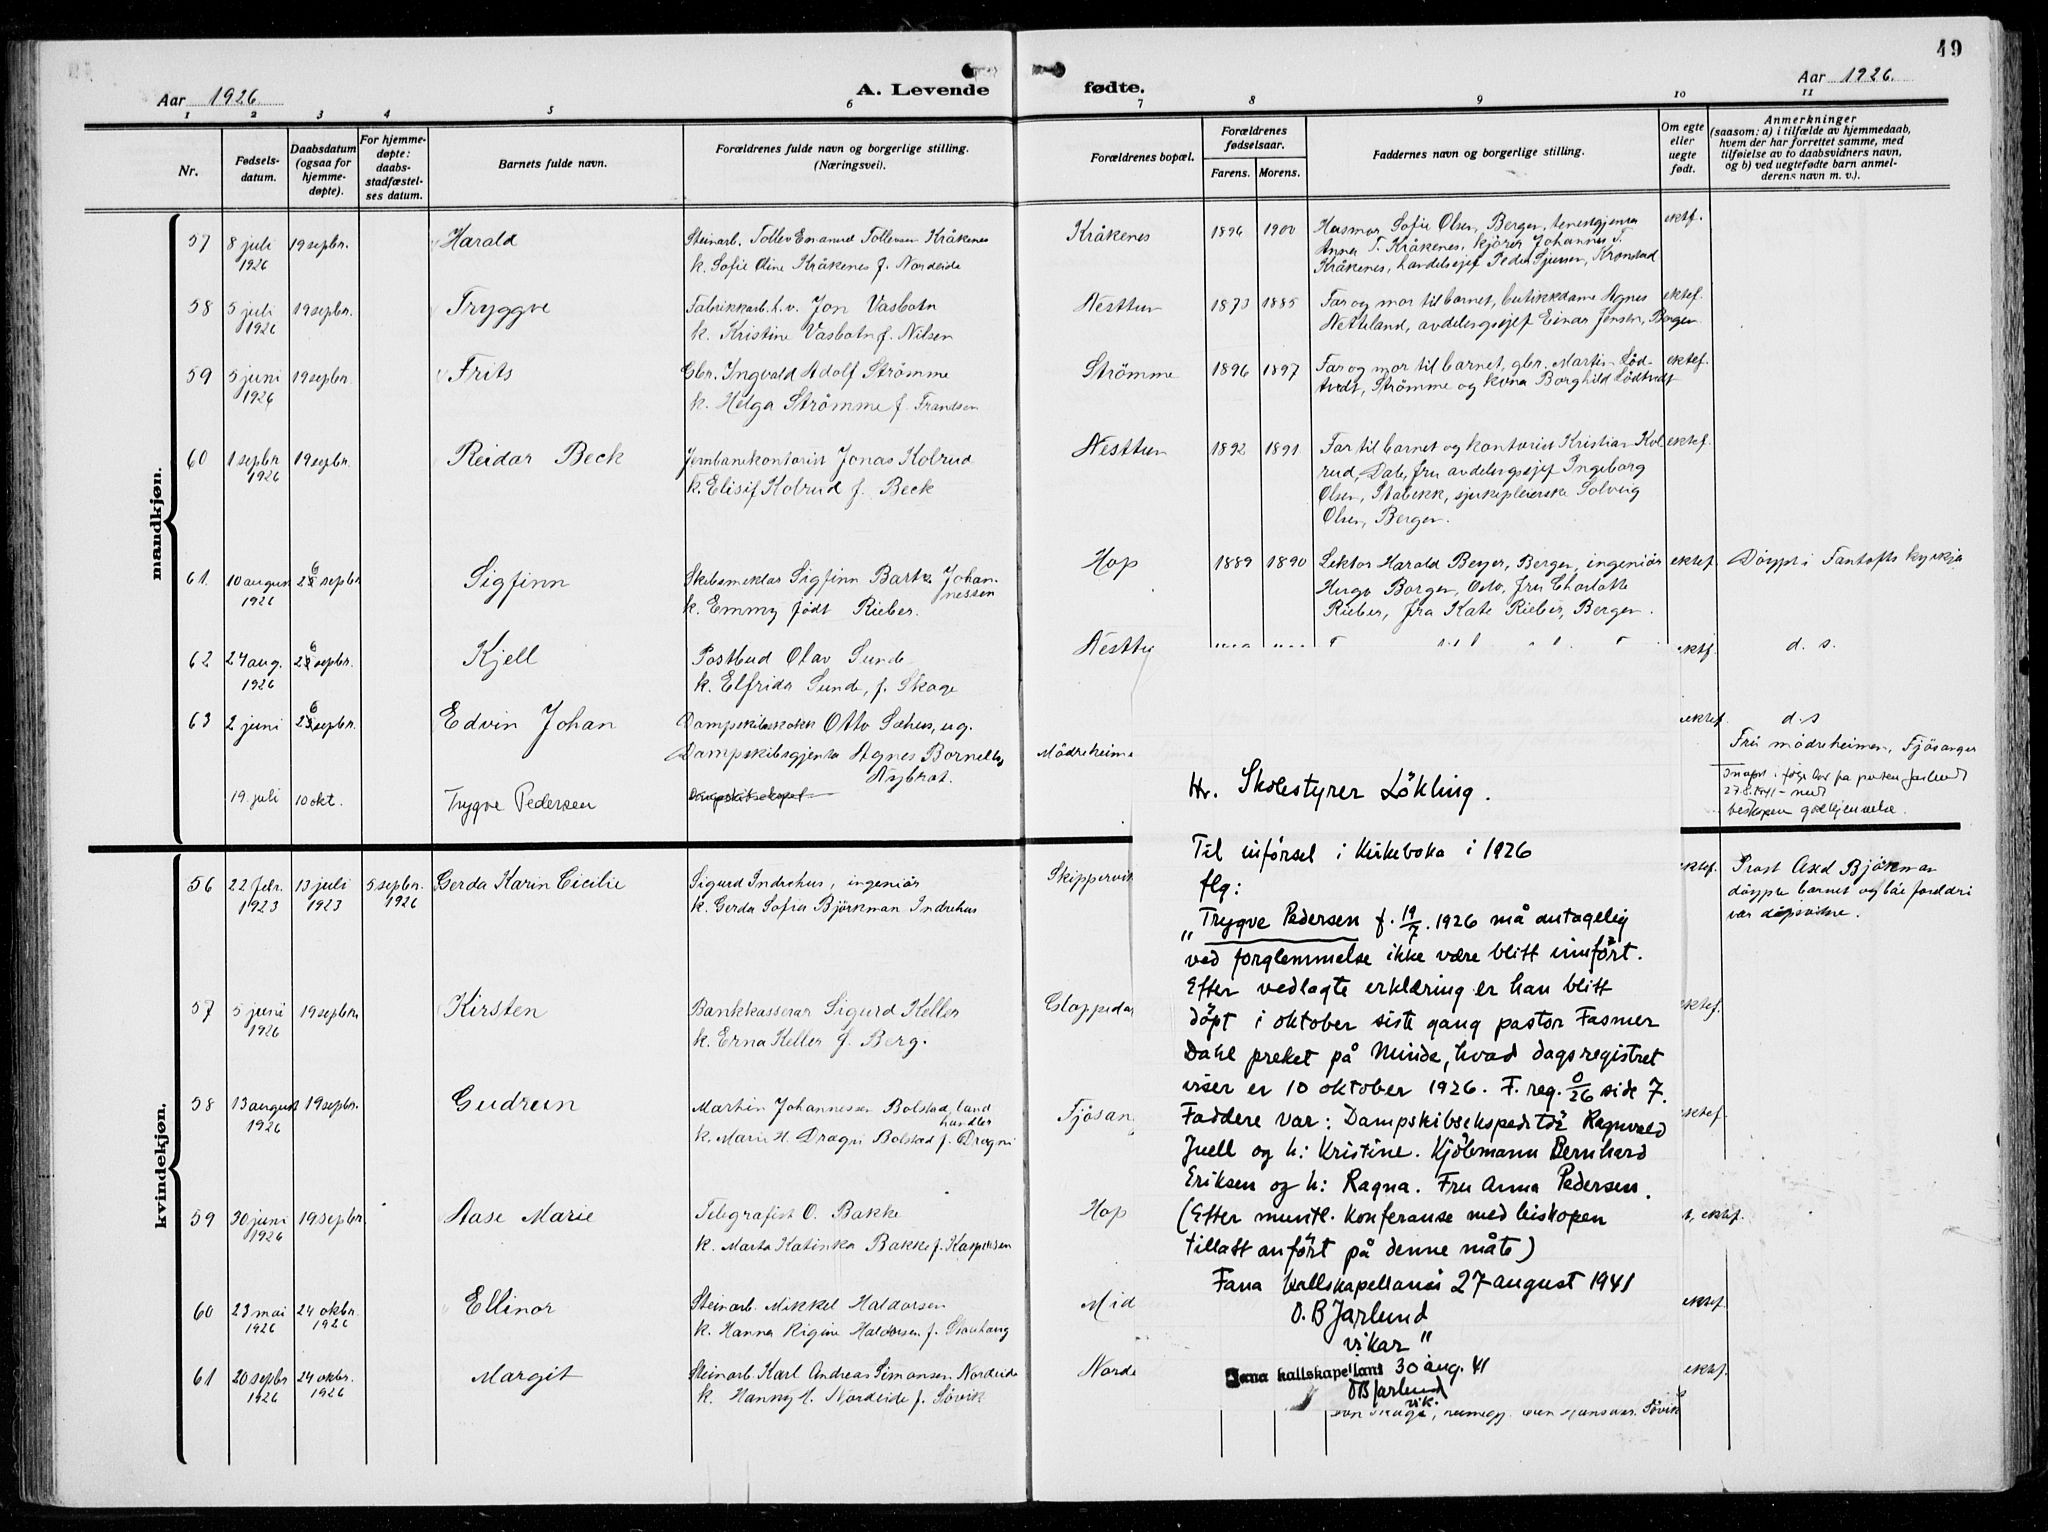 49
Aar 1926
A. Levende
fødte.
Aar 1926.
1 2 3 4 5 6 7 8 9 10 11
Nr.
Fødsels-
datum.
Daabsdatum
(ogsaa for
hjemme-
døpte).
For hjemme-
døpte:
daabs-
stadfæstel-
ses datum.
Barnets fulde navn.
Forældrenes fulde navn og borgerlige stilling.
(Næringsvei).
Forældrenes bopæl.
Forældrenes
fødselsaar.
Farens. Morens.
Faddernes navn og borgerlige stilling.
Om egte
eller
uegte
født.
Anmerkninger
(saasom: a) i tilfælde av hjemmedaab,
hvem der har forrettet samme, med
tilføielse av to daabsvidners navn,
og b) ved uegtefødte barn anmel-
derens navn m. v.).
mandkjøn.
57 8 juli 1926 19 sepbr. Harald
Steinarb. Tollev Emanuel Tollevsen Kråkenes
k. Sofie Oline Kråkenes f. Nordeide
Kråkenes 1896 1900
Husmor Sofie Olsen, Bergen, tenestgjenta
Anna T. Kråkenes, kjörer Johannes T.
Kråkenes, handelsejef Peder Sjursen, Kronstad
ektef.
58 5 juli 1926 19 sepbr. Tryggve
Fabrikkarb. h.v. Jon Vasbotn
k. Kristine Vasbotn f. Nilsen
Nesttun 1873 1885
Far og mor til barnet, butikkdame Agnes
Netteland, avdelingssjef Einar Jensen, Bergen
ektef.
59 5 juni 1926 19 sepbr. Frits
Gbr. Ingvald Adolf Strömme
k. Helga Strömme f. Frandsen
Strömme 1896 1897
Far og mor til barnet, gbr. Martin Löd-
tvedt, Strömme og kona Borghild Lödtvedt
ektef.
60 1 sepbr 1926 19 sepbr. Reidar Beck
Jernbanekontorist Jonas Kolrud
k. Elisif Kolrud f. Beck
Nesttun 1892 1891
Far til barnet og kontorist Kristian Kol
rud, Dale, fru avdelingssjef Ingeborg
Olsen, Stabekk, sjukepleierske Solveig
Olsen, Bergen.
ektef.
61. 10 august 1926 26 sepbr Sigfinn
Skibsmeklar Sigfinn Bartz Johan-
nessen
k. Emmy født Rieber.
Hop 1889 1890
Lektor Harald Beyer, Bergen, ingeniör
Hugo Borgen, Oslo, fru Charlotte
Rieber, fru Kate Rieber, Bergen.
ektef. Döypt i Fantofts kyrkja
62 24 aug. 1926 26 sepbr. Kjell
Postbud Olav Sunde
k. Elfrida Sunde, f. Skage
Nesttu
ektf. d. s.
63 2 juni 26 sepbr. Edvin Johan
Dampskibskokk Otto Sæhus, ug.
Dampskibsgjenta Agnes
Mödreheime
ektef. d. s
Fru mödreheimen, Fjösanger
19. juli 10 okt. Trygve Pedersen
kvindekjøn.
56 22 febr. 1923 13 juli 1923 5 sepbr. 1926 Gerda Karin Cicilie
Sigurd Indrehus, ingeniör
k. Gerda Sofia Björkman Indrehus
Skippervik
ektef. Prost Axel Björkman
döypte barnet og båe foreldri
var döpsvitne.
57 5 juni 1926 19 sepbr Kirsten
Bankkasserar Sigurd Keller
k. Erna Keller f. Berg.
Sloppedal
ektef.
58 13 august 1926 19 sepbr. Gudrun
Martin Johannessen Bolstad, land
handler
k. Marie H. Dragni Bolstad f. Dragni
Fjösan
ektef
59 30 juni 1926 19 sepbr. Aase Marie
Telegrafist O. Bakke
k. Marta Katinka Bakke f. Kaspersen
Hop
ektef.
60 23 mai 1926 24 oktbr. 1926 Ellinor
Steinarb. Mikkel Haldorsen
k. Hanna Rigine Haldorsen f.
Mid
ektef.
61 20 sepbr 1926 24 oktbr. 1926 Margit
Steinarb. Karl Andreas Simonsen Nordeide
k. Hanny M. Nordeide f. Sövik
Norde
ektef.
Hr. Skolestyrer Lökling.
Til införsel i Kirkeboka i 1926
flg:
"Trygve Pedersen f. 19/7. 1926 må antagelig
ved forglemmelse ikke være blitt innfört.
Efter vedlagte erklæring er han blitt
döpt i oktober siste gang pastor Fasmer
Dahl preket på Minde, hvad dagsregistret
viser er 10 oktober 1926. F. reg. 0/26 side 7.
Faddere var: Dampskibsekspeditör Ragnvald
Juell og h: Kristine. Kjöbmann Bernhard
Eriksen og h: Ragna. Fru Anna Pedersen.
(Efter muntl. konferanse med biskopen
tillatt anfört på denne måte)
Fana kallskapellani 27 august 1941
O. B Jarlund
vikar "
Fana kallskapellani 30 aug. 41
OB Jarlund
vik.